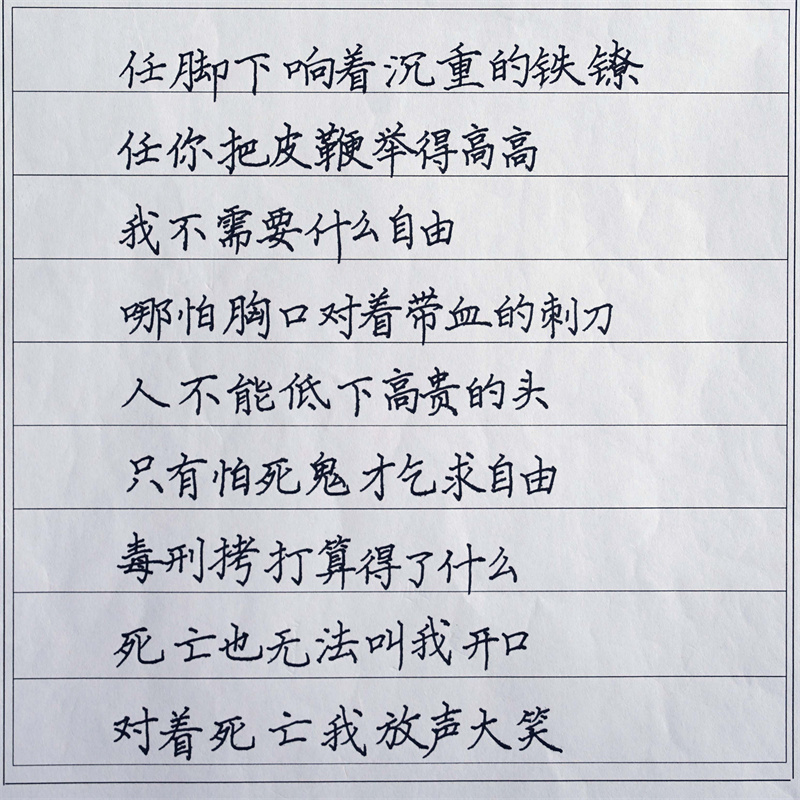 任脚下响着沉重的铁镣
任你把皮鞭举得高高
我不需要什么自由
哪怕胸口对着带血的刺刀
人不能低下高贵的头
只有怕死鬼才乞求自由
毒刑拷打算得了什么
死亡也无法叫我开口
对着死亡我放声大笑